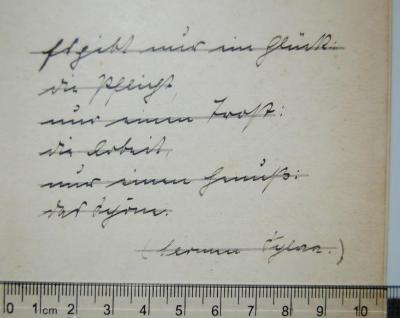 Es gibt nur ein Glück:
die Pflicht,
nur einen Trost:
die Arbeit,
nur einen Genuß:
das Schöne.
(Carmen Sylva.)
0 1 cm 2 3 4 5 6 7 8 9 10